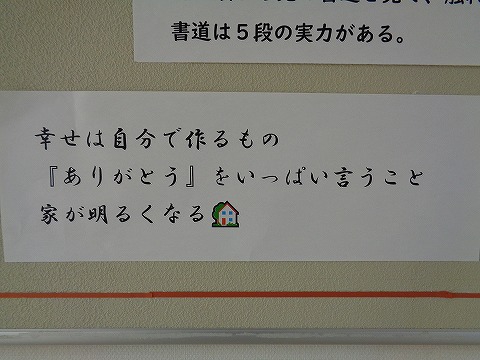 書道は５段の実力がある。
幸せは自分で作るもの
『ありがとう』をいっぱい言うこと
家が明るくなる